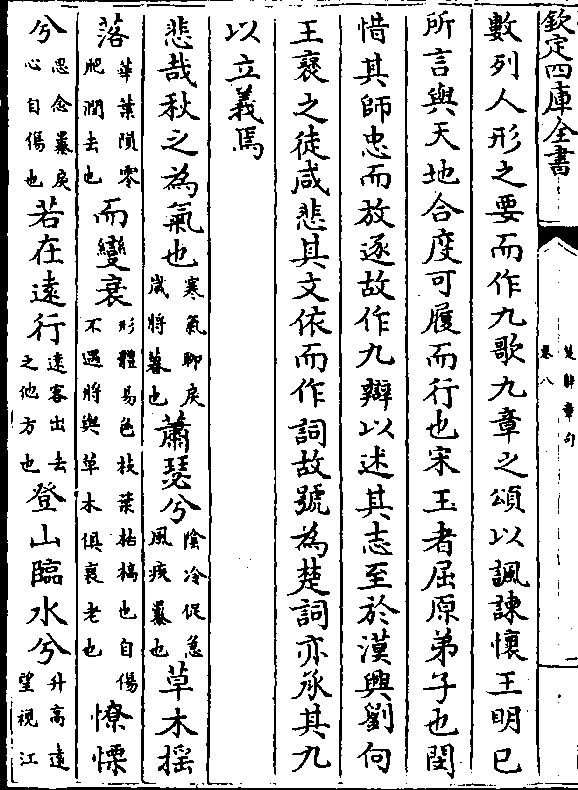 欽定四庫全書
楚辭章句
卷八
數列人形之要而作九歌九章之頌以諷諫懷王明已
所言與天地合度可履而行也宋玉者屈原弟子也閔
惜其師忠而放逐故作九辯以述其志至於漢興劉向
王襃之徒咸悲其文依而作詞故號為楚詞亦承其九
以立義焉
悲哉秋之為氣也寒氣聊戾歲將暮也蕭瑟兮陰冷促急風疾暴也草木摇
落華葉隕零肥潤去也而變衰形體易色枝葉枯槁也自傷不遇將與草木俱衰老也憭慄
兮思念暴戾心自傷也若在遠行遠客出去之他方也登山臨水兮升高遠望視江